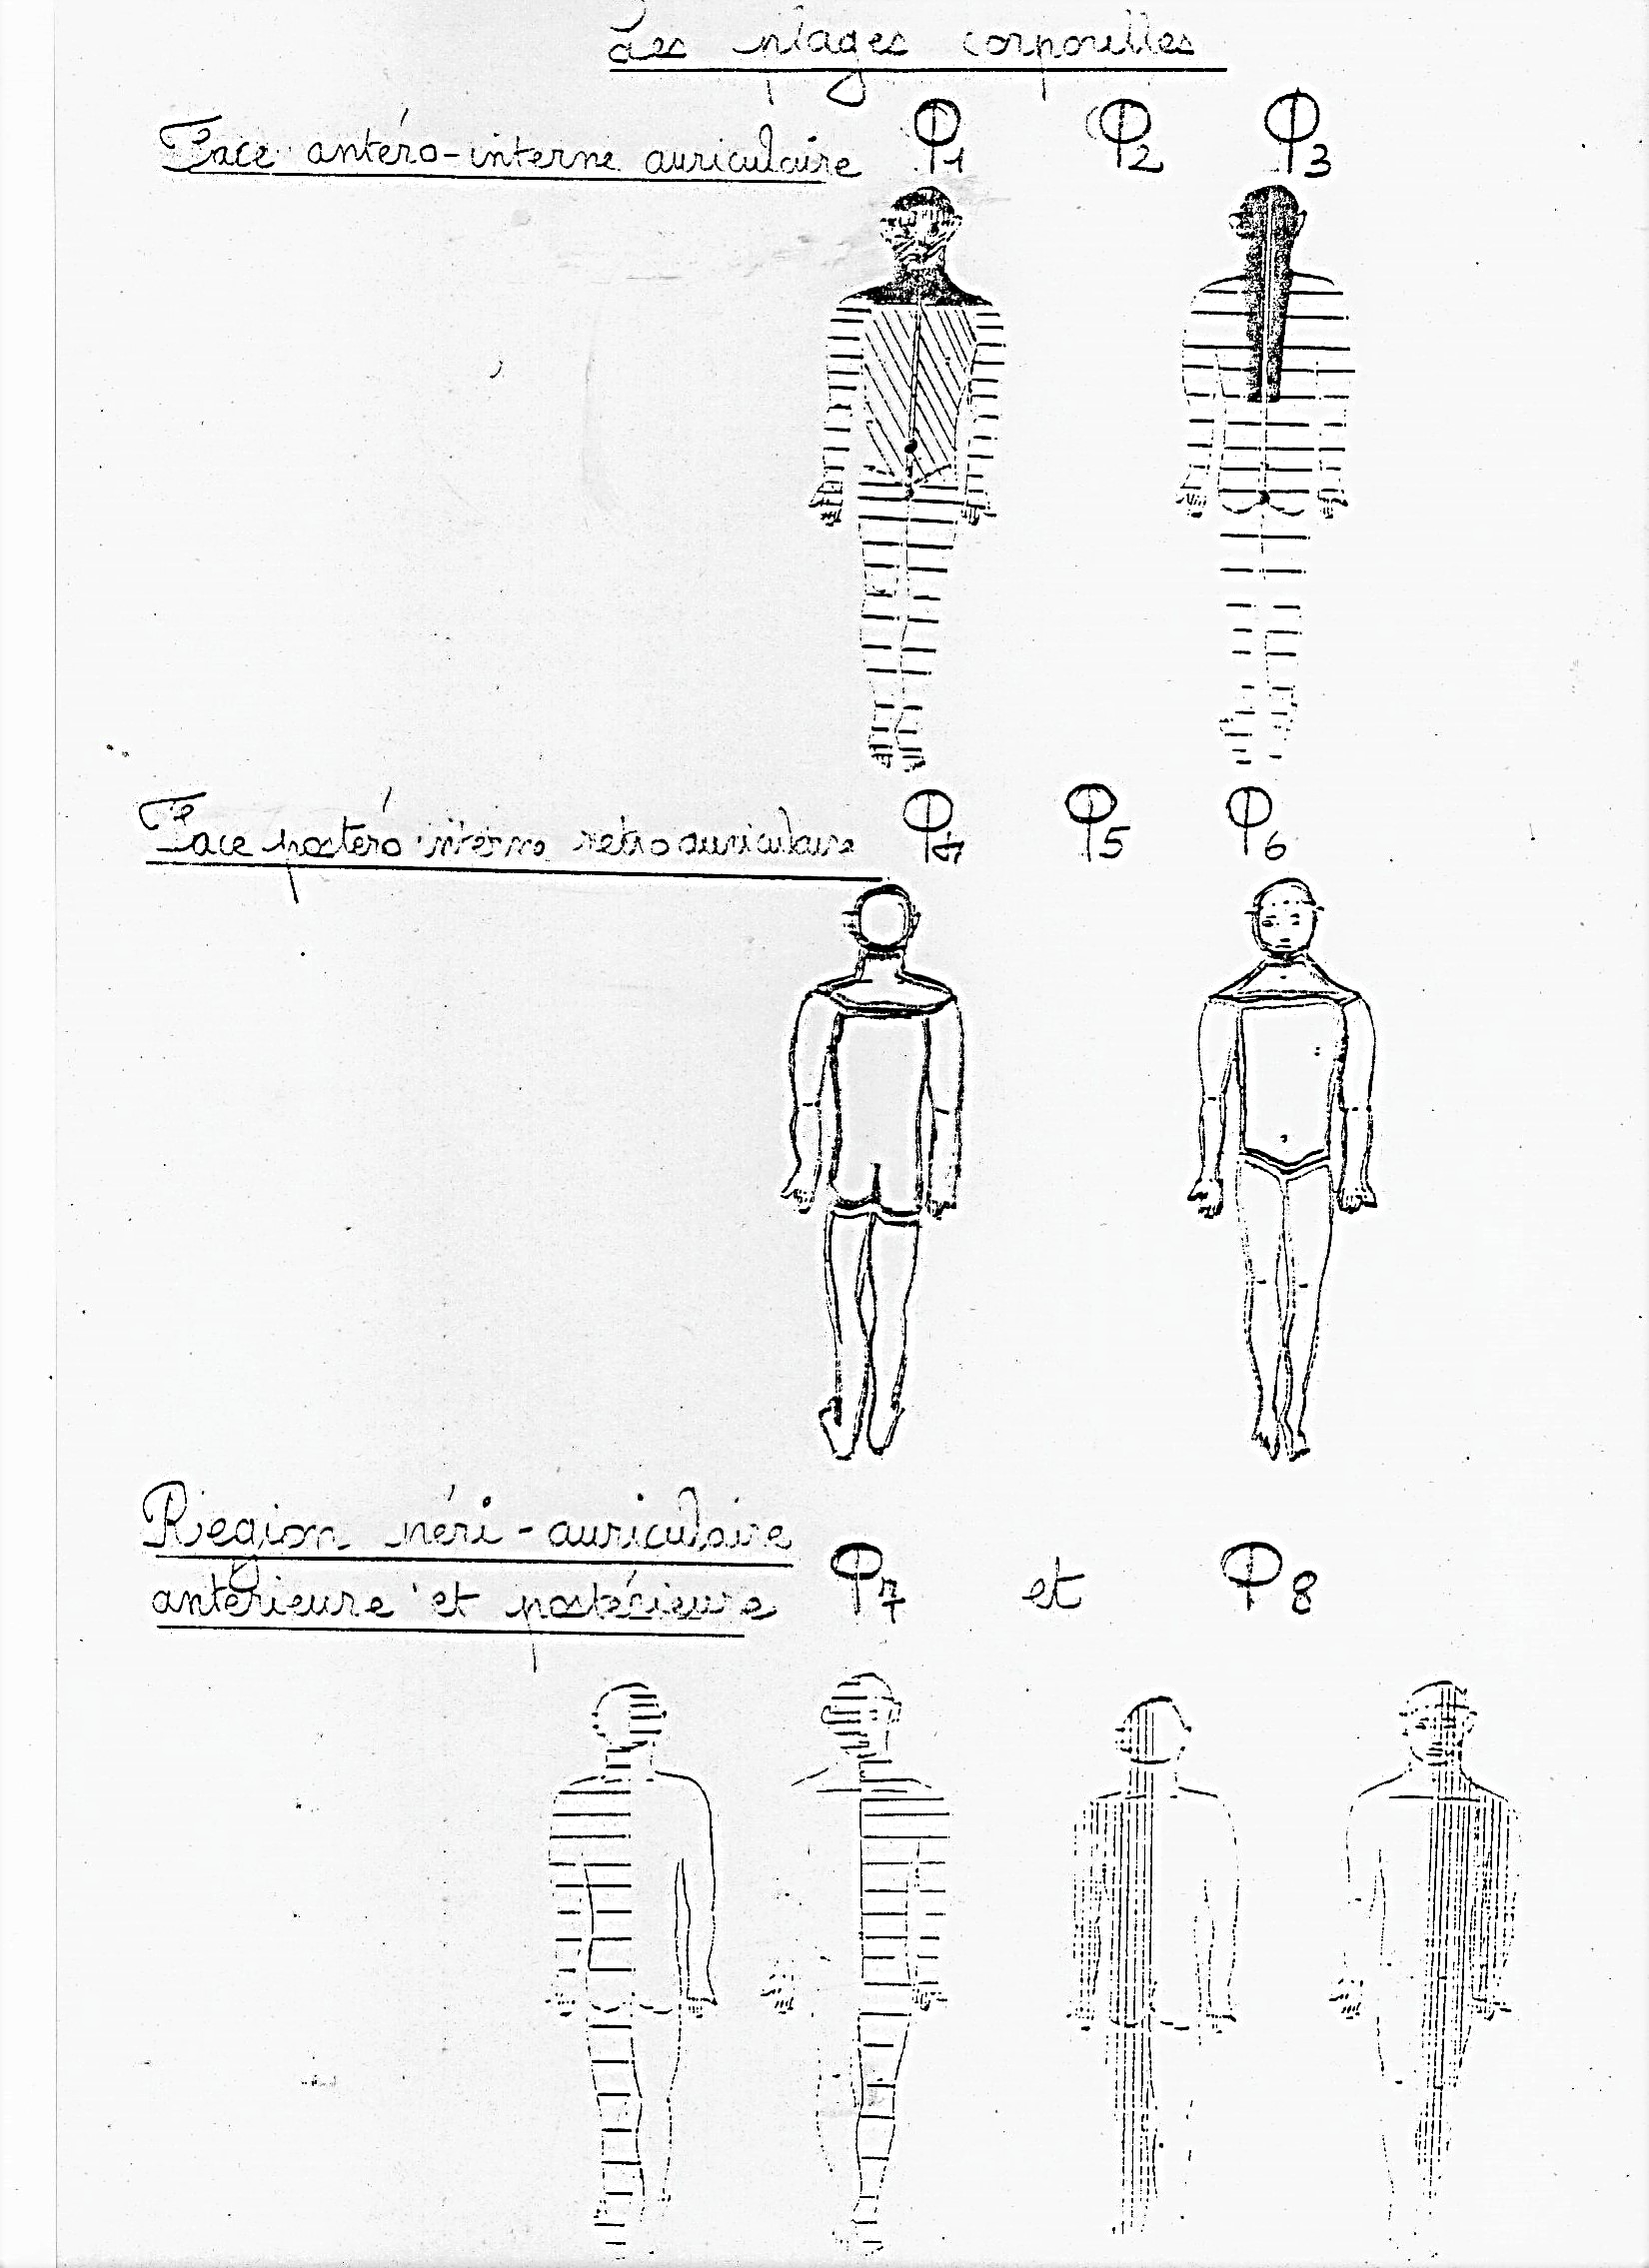 Les plages corporelles
Face antéro-interne auriculaire Φ1 Φ2 Φ3
Face postéro interne retro auriculaire Φ4 Φ5 Φ6
Région péri-auriculaire
antérieure et postérieure Φ7 et Φ8